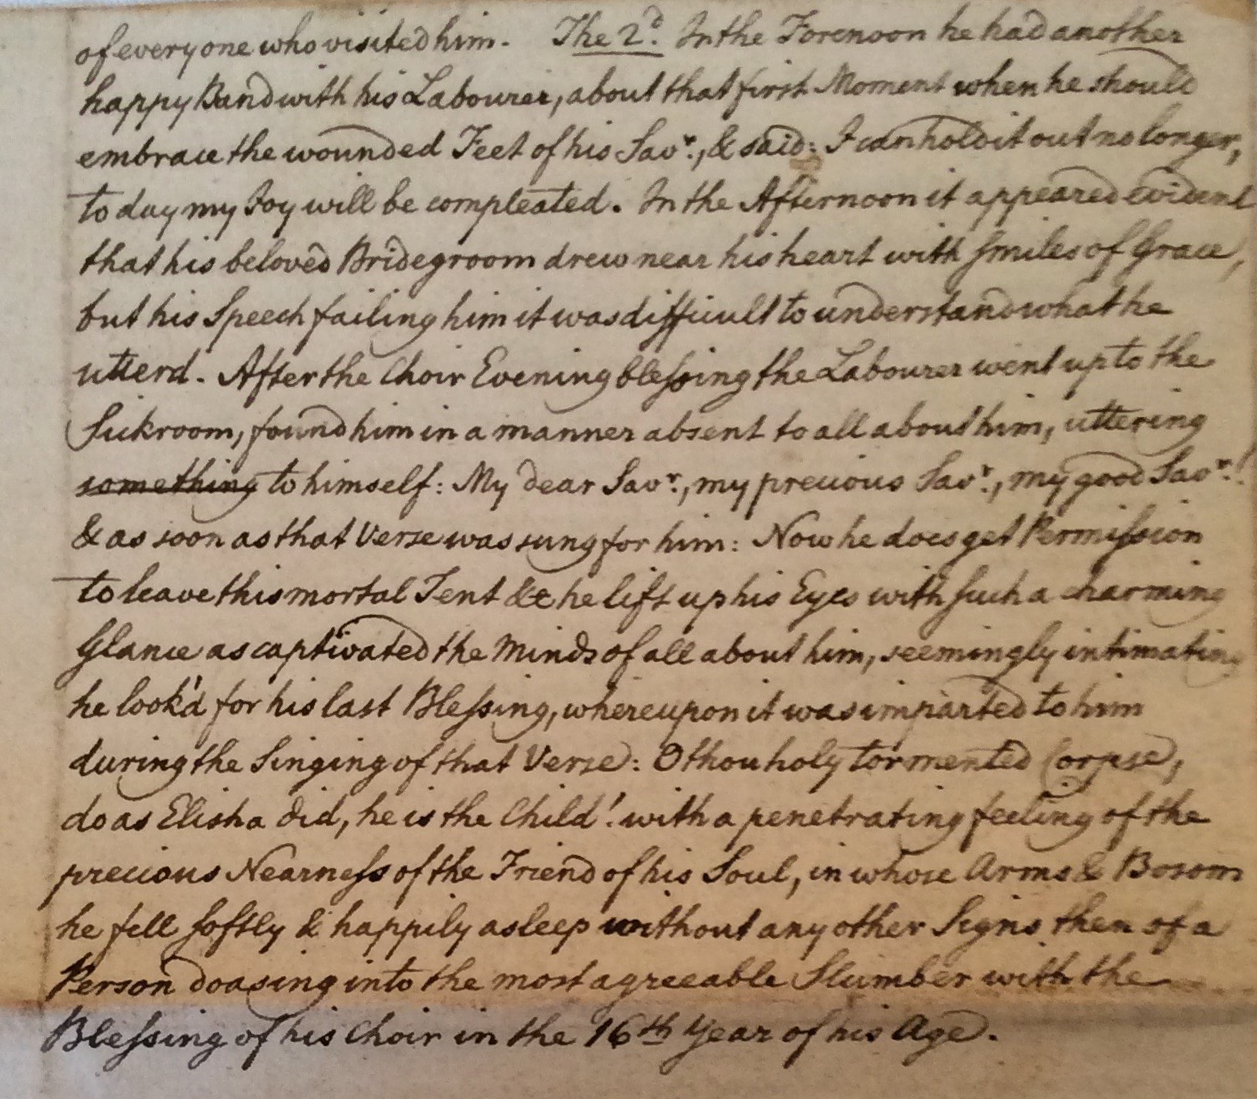 of everyone who visited him. The 2d. In the Forenoon he had another
happy Band with his Labourer, about that first Moment when he should
embrace the wounded Feet of his Savr., & said: I can hold it out no longer,
to day my Joy will be compleated. In the Afternoon it appeared evident
that his beloved Bridegroom drew near his heart with Smiles of Grace,
but his Speech failing him it was difficult to understand what he
utterd. After the Choir Evening blessing the Labourer went up to the
Sickroom, found him in a manner absent to all about him, uttering
something to himself: My dear Savr., my precious Savr., my good Savr.!
& as soon as that Verse was sung for him: Now he does get Permission
to leave this mortal Tent &c he lift up his Eyes with such a charming
Glance as captivated the Minds of all about him, seemingly intimating
he look'd for his last Blessing, whereupon it was imparted to him
during the Singing of that Verse: O thou holy tormented Corpse,
do as Elisha did, he is the Child! with a penetrating feeling of the
precious Nearness of the Friend of his Soul, in whose Arms & Bosom
he fell softly & happily asleep without any other Signs then of a
Person doasing into the most agreeable Slumber with the
Blessing of his Choir in the 16th Year of his Age.